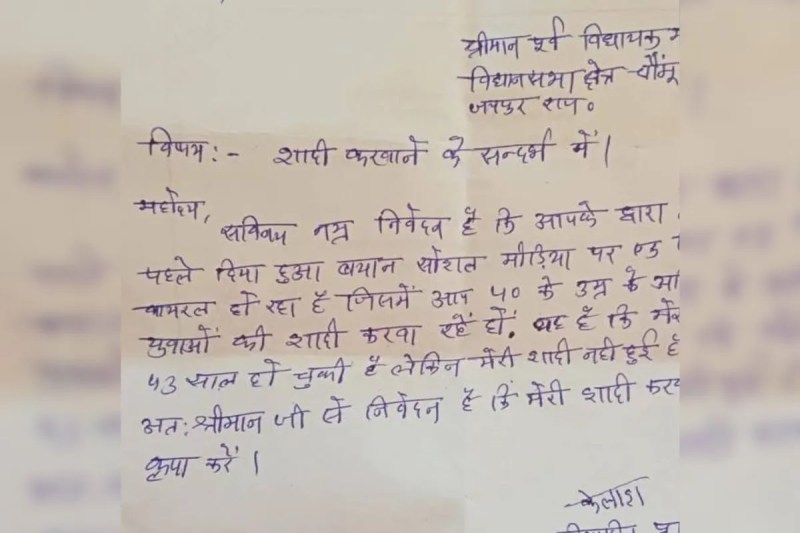 श्रीमान पूर्व विधायक
विधानसभा क्षेत्र चौंमू
जयपुर राज०
विषय:- शादी करवाने के सन्दर्भ में।
महोदय,
सविनय नम्र निवेदन है कि आपके द्वारा
पहले दिया हुआ बयान सोशल मीडिया पर
वायरल हो रहा है जिसमें आप ५० के उम्र के
युवाओं की शादी करवा रहें हों. यह है कि
५३ साल हो चुकी है लेकिन मेरी शादी नही हुई है
अत: श्रीमान जी से निवेदन है कि मेरी शादी
कृपा करें।
कैलाश